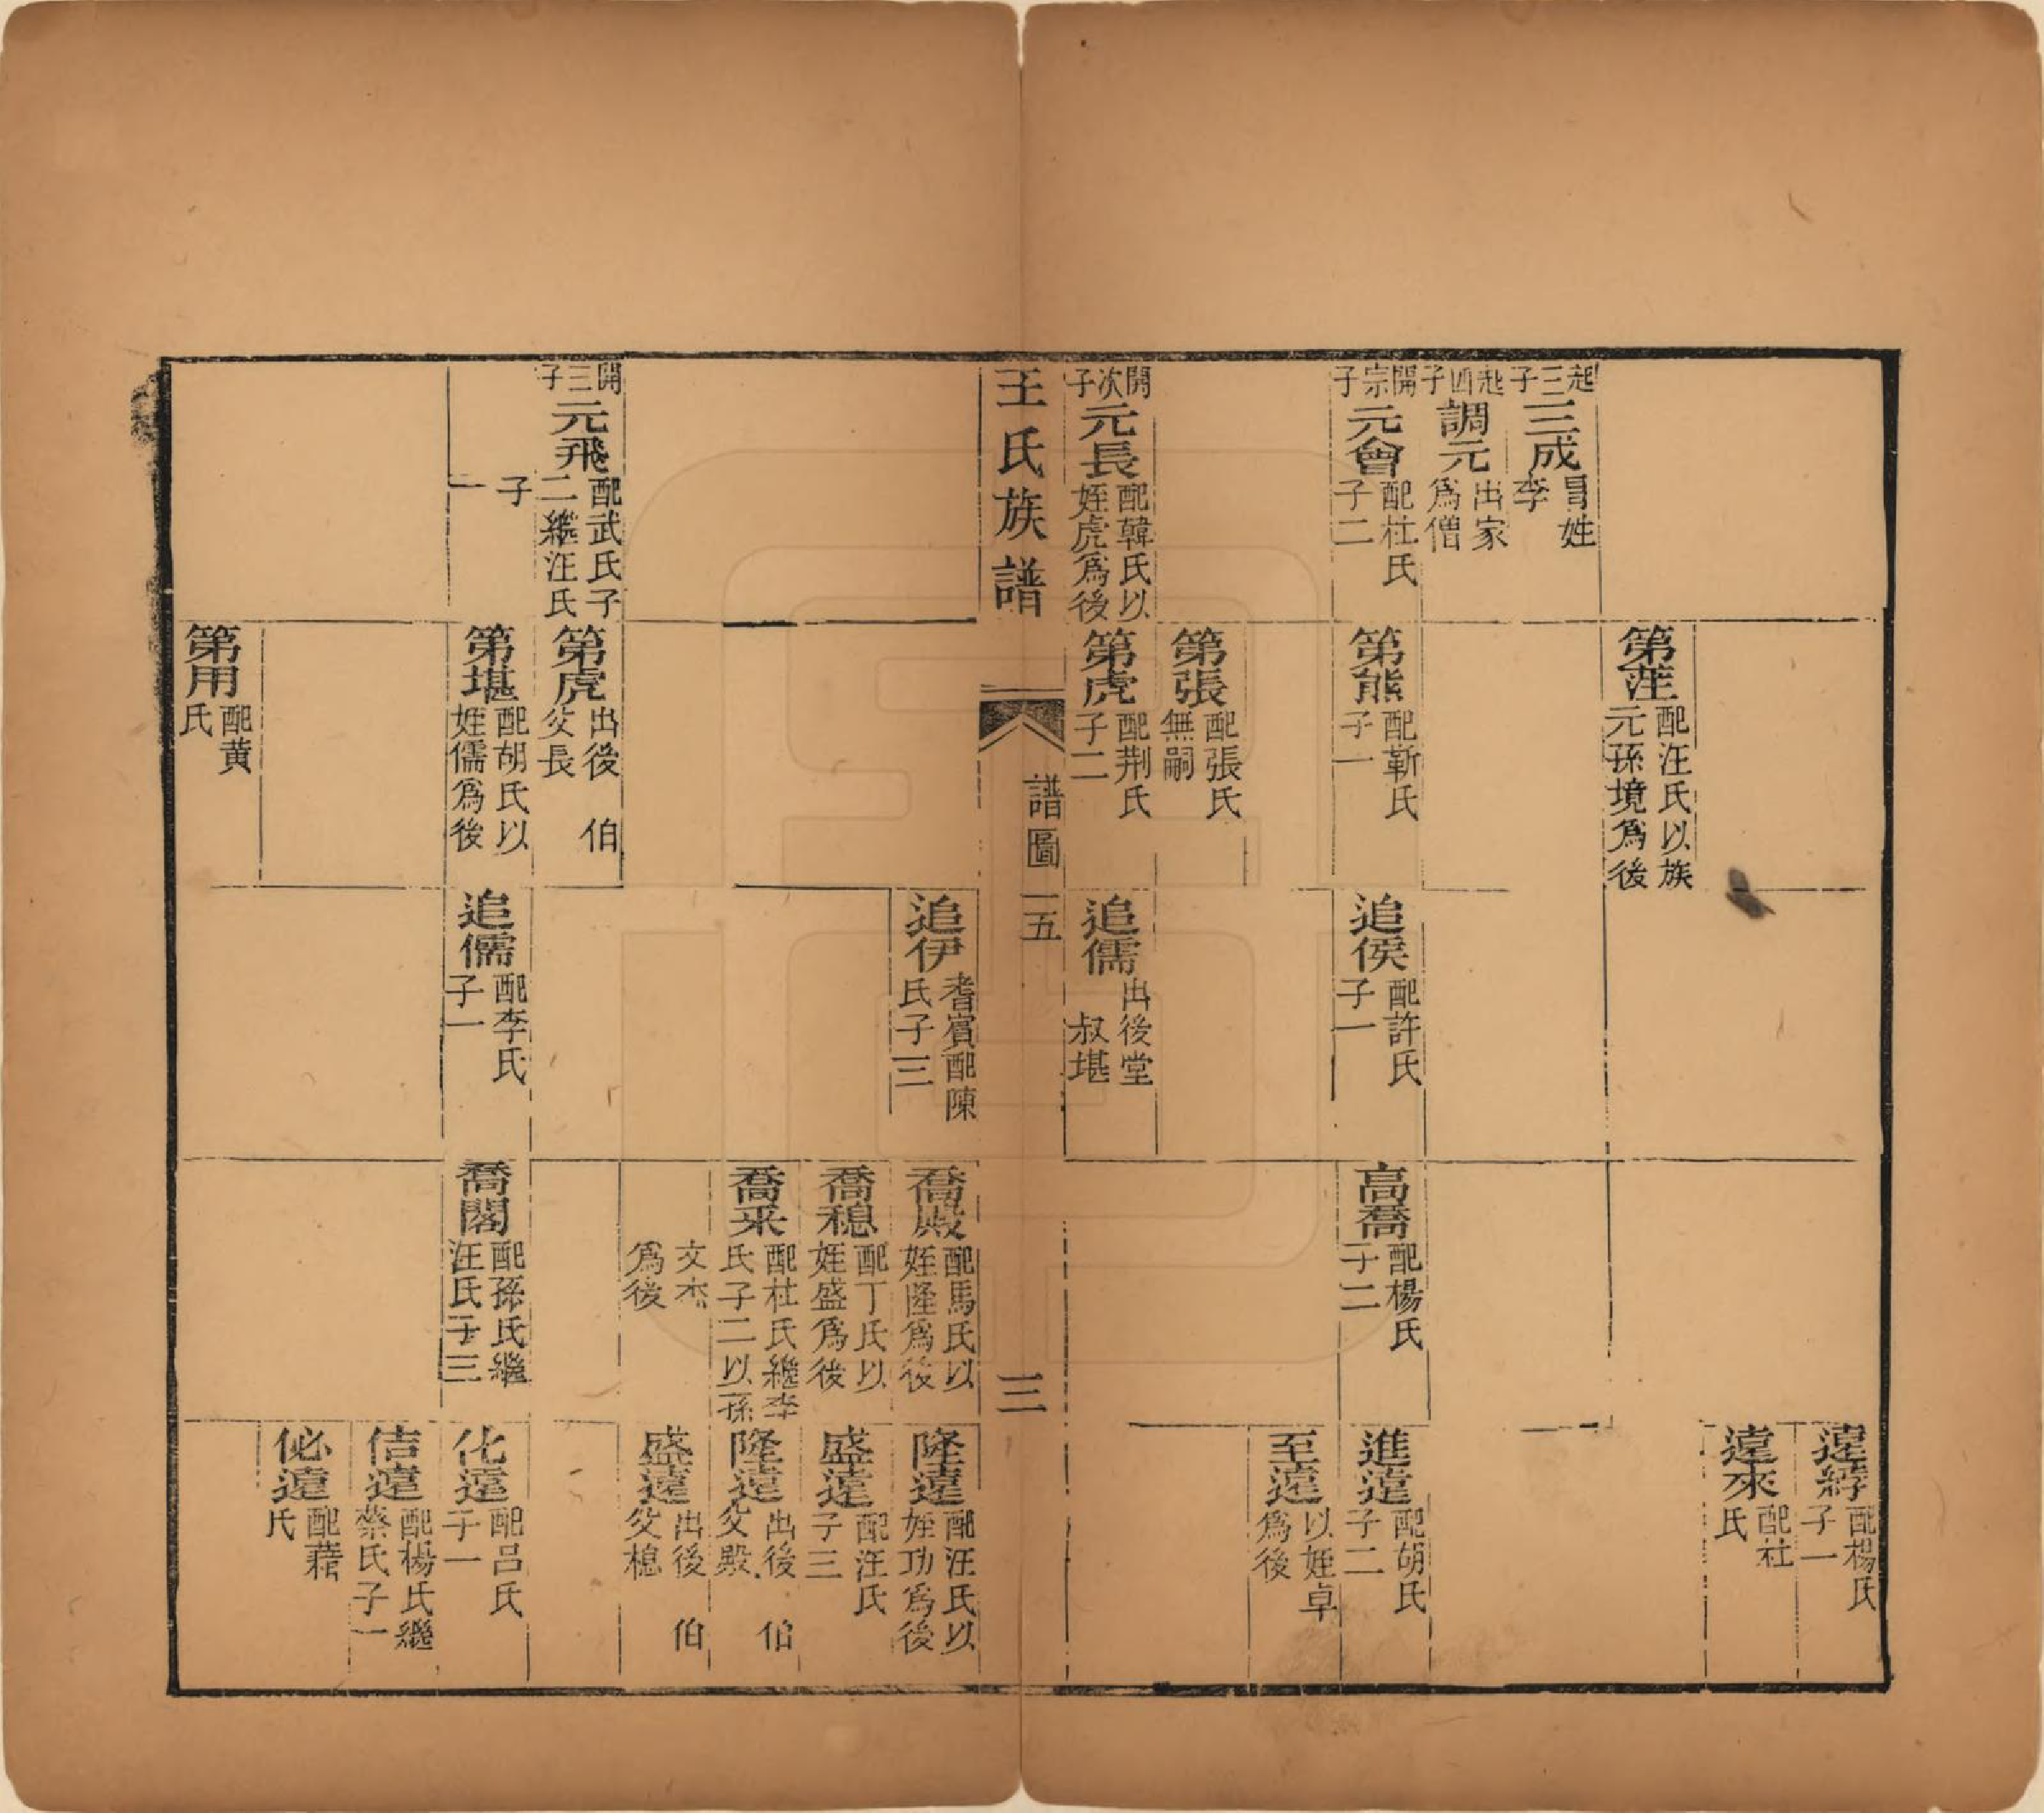 起三子
三成
冒姓
李
起四子
調元
出家
爲僧
開宗子
元會
配杜氏
子二
開次子
元長
配韓氏以
姪虎爲後
第𦭳
配汪氏以族
元孫境爲後
第熊
配靳氏
子一
第張
配張氏
無嗣
第虎
配荆氏
子二
追侯
配許氏
子一
追儒
出後堂
叔堪
高喬
配楊氏
子二
遠綍
配楊氏
子一
遠來
配社
氏
進遠
配胡氏
子二
至遠
以姪卓
爲後
王氏族譜
譜圖一五
三
開三子
元飛
配武氏子
二繼汪氏
子
一
第虎
出後 伯
父長
第堪
配胡氏以
姪儒爲後
第用
配黄
氏
追伊
耆賓配陳
氏子三
追儒
配李氏
子一
喬殿
配馬氏以
姪隆爲後
喬穏
配丁氏以
姪盛爲後
喬采
配杜氏繼李
氏子二以孫
文杰
爲後
喬閣
配孫氏繼
汪氏子三
隆遠
配汪氏以
姪功爲後
盛遠
配汪氏
子三
隆遠
出後 伯
父殿
盛遠
出後 伯
父穏
化遠
配吕氏
子一
信遠
配楊氏繼
蔡氏子一
佖遠
配藉
氏